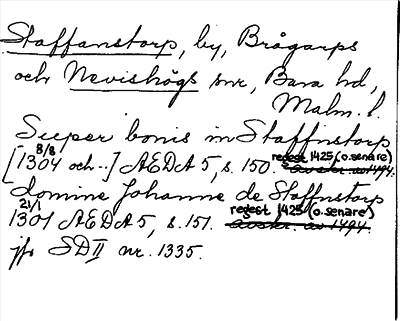 Staffanstorp, by, Brågarps
och Nevishögs snr, Bara hd,
Malm. l.
Super bonis in Staffnstorp
8/8 regest 1425 (o. senare)
[1304 och..] AEDA 5, s. 150. avskr. av 1494.
domine Johanne de Staffnstorp
21/1 regest 1425 (o. senare)
1301 AEDA 5, s. 151. avskr. av 1494.
jfr SD II nr. 1335.